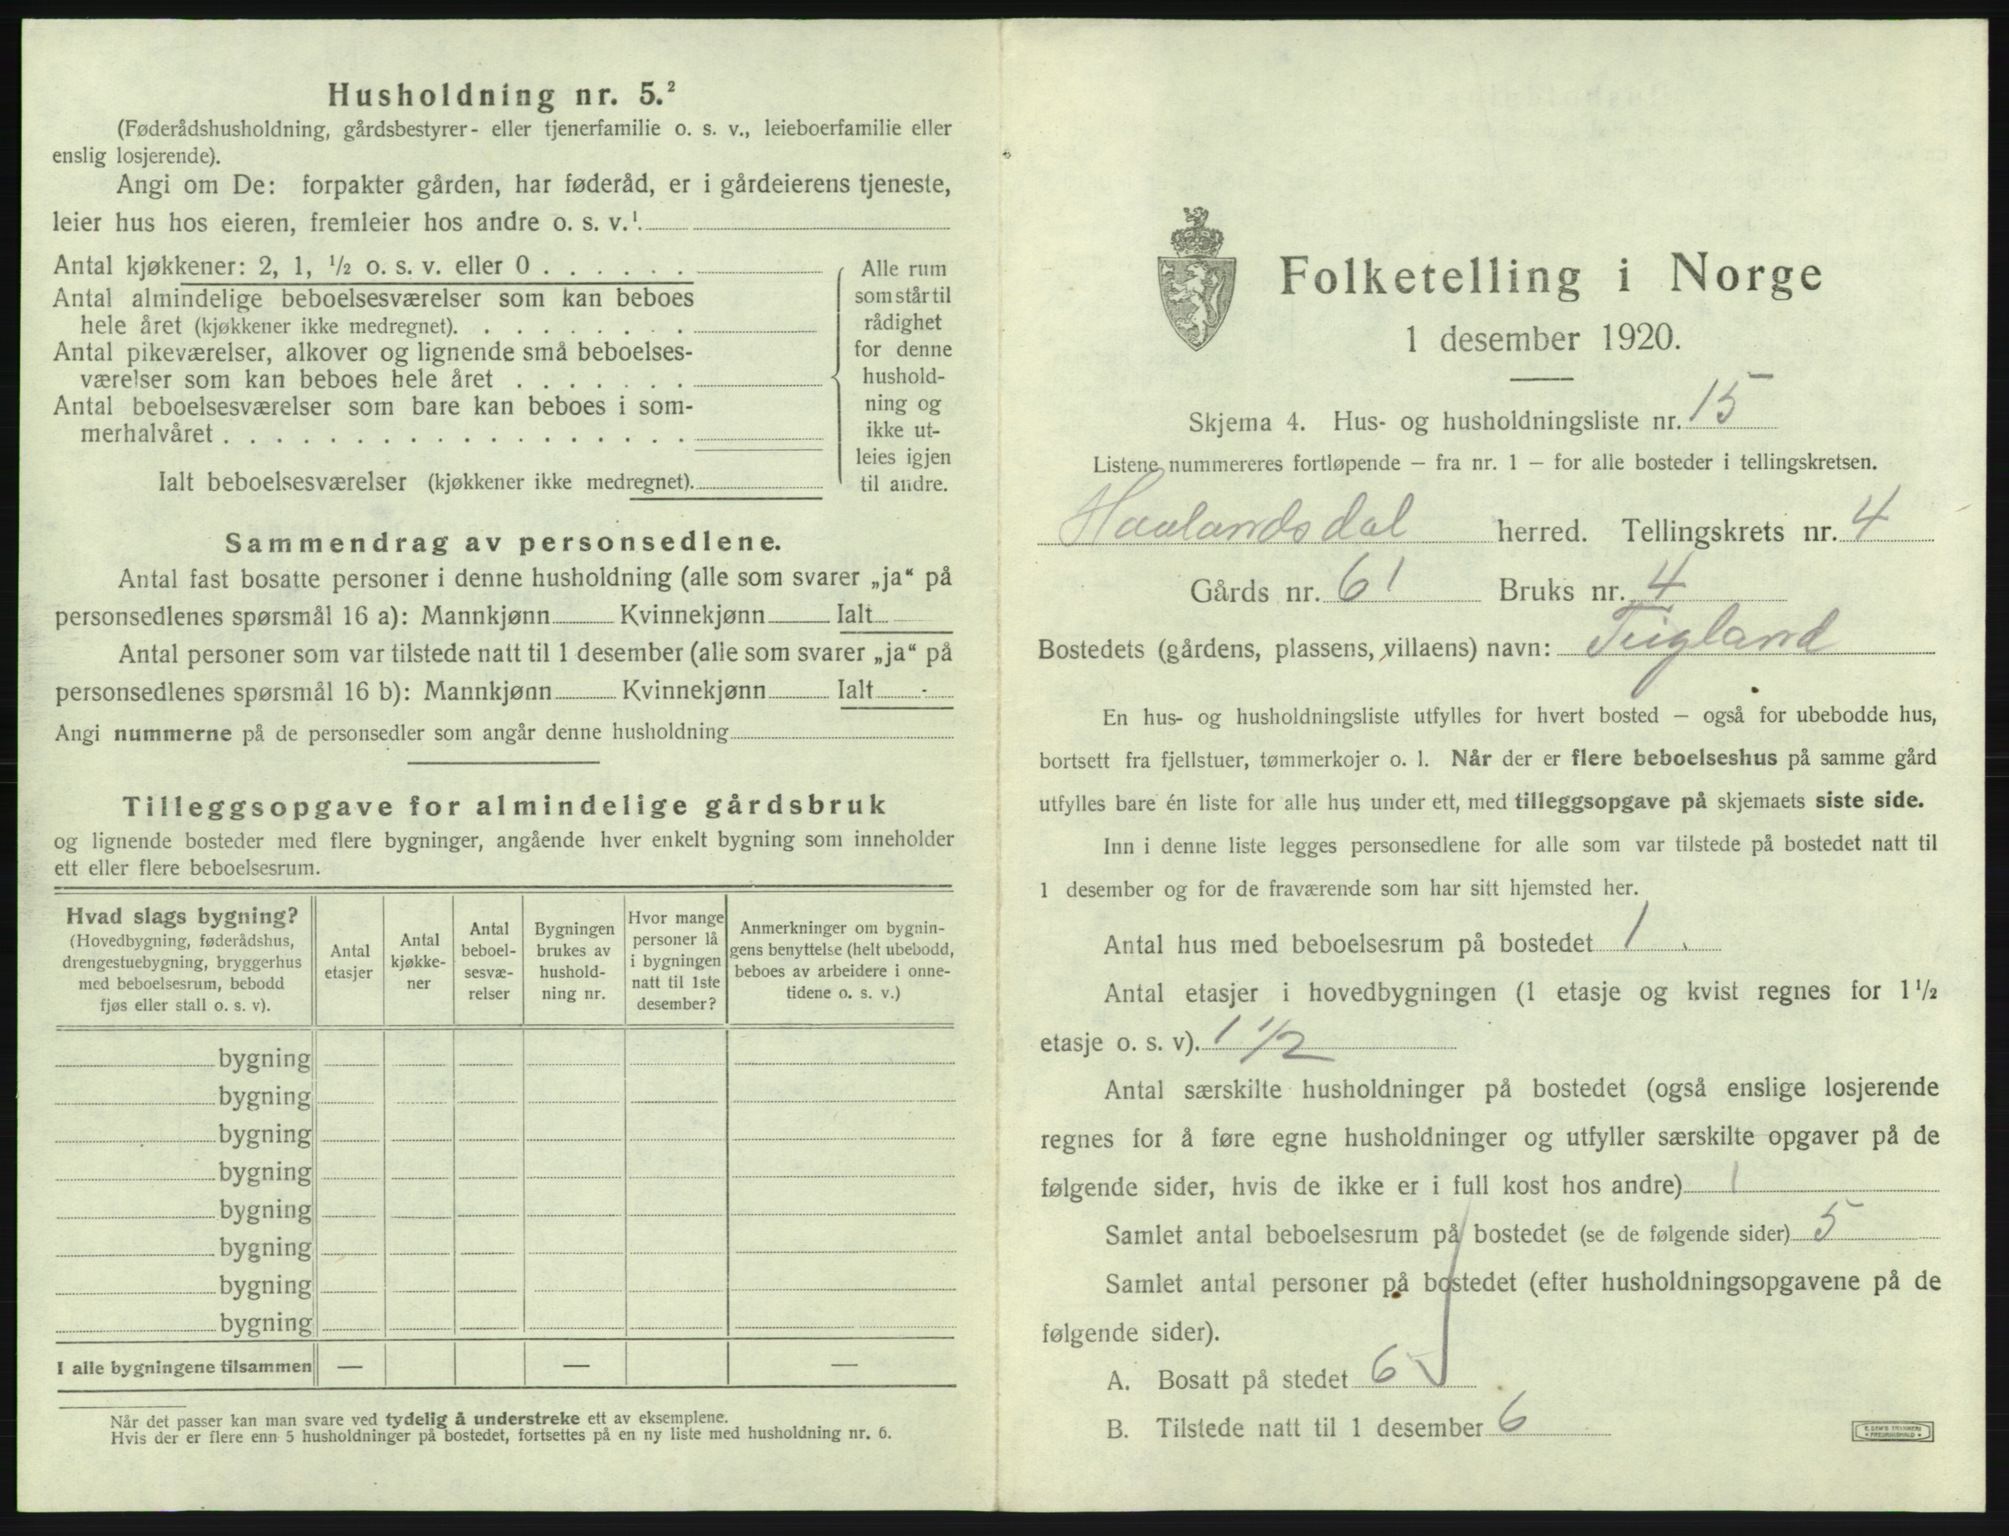 Husholdning nr. 5.²
(Føderådshusholdning, gårdsbestyrer- eller tjenerfamilie o. s. v., leieboerfamilie eller
enslig losjerende).
Angi om De: forpakter gården, har føderåd, er i gårdeierens tjeneste,
leier hus hos eieren, fremleier hos andre o. s. v.¹
Antal kjøkkener: 2, 1, ½ o. s. v. eller 0 . . . . . .
Antal almindelige beboelsesværelser som kan beboes
hele året (kjøkkener ikke medregnet). . . . . . . . .
Antal pikeværelser, alkover og lignende små beboelses-
værelser som kan beboes hele året . . . . . . .
Antal beboelsesværelser som bare kan beboes i som-
merhalvåret . . . . . . . . . . . . . . . . . .
Ialt beboelsesværelser (kjøkkener ikke medregnet).
Alle rum
som står til
rådighet
for denne
hushold-
ning og
ikke ut-
leies igjen
til andre.
Sammendrag av personsedlene.
Antal fast bosatte personer i denne husholdning (alle som svarer „ja“ på
personsedlenes spørsmål 16 a): Mannkjønn Kvinnekjønn Ialt
Antal personer som var tilstede natt til 1 desember (alle som svarer „ja“ på
personsedlenes spørsmål 16 b): Mannkjønn Kvinnekjønn Ialt
Angi nummerne på de personsedler som angår denne husholdning
Tilleggsopgave for almindelige gårdsbruk
og lignende bosteder med flere bygninger, angående hver enkelt bygning som inneholder
ett eller flere beboelsesrum.
Hvad slags bygning?
(Hovedbygning, føderådshus,
drengestuebygning, bryggerhus
med beboelsesrum, bebodd
fjøs eller stall o. s. v).
Antal
etasjer
Antal
kjøkke-
ner
Antal
beboel-
sesvæ-
relser
Bygningen
brukes av
hushold-
ning nr.
Hvor mange
personer lå
i bygningen
natt til 1ste
desember?
Anmerkninger om bygnin-
gens benyttelse (helt ubebodd,
beboes av arbeidere i onne-
tidene o. s. v.)
bygning
bygning
bygning
bygning
bygning
bygning
bygning
bygning
I alle bygningene tilsammen — — —
Når det passer kan man svare ved tydelig å understreke ett av eksemplene.
Hvis der er flere enn 5 husholdninger på bostedet, fortsettes på en ny liste med husholdning nr. 6.
Folketelling i Norge
1 desember 1920.
Skjema 4. Hus- og husholdningsliste nr. 15
Listene nummereres fortløpende – fra nr. 1 – for alle bosteder i tellingskretsen.
Haalandsdal herred. Tellingskrets nr. 4
Gårds nr. 61 Bruks nr. 4
Bostedets (gårdens, plassens, villaens) navn: Teigland
En hus- og husholdningsliste utfylles for hvert bosted – også for ubebodde hus,
bortsett fra fjellstuer, tømmerkojer o. l. Når der er flere beboelseshus på samme gård
utfylles bare én liste for alle hus under ett, med tilleggsopgave på skjemaets siste side.
Inn i denne liste legges personsedlene for alle som var tilstede på bostedet natt til
1 desember og for de fraværende som har sitt hjemsted her.
Antal hus med beboelsesrum på bostedet 1
Antal etasjer i hovedbygningen (1 etasje og kvist regnes for 1½
etasje o. s. v). 1 1/2
Antal særskilte husholdninger på bostedet (også enslige losjerende
regnes for å føre egne husholdninger og utfyller særskilte opgaver på de
følgende sider, hvis de ikke er i full kost hos andre) 1
Samlet antal beboelsesrum på bostedet (se de følgende sider) 5
Samlet antal personer på bostedet (efter husholdningsopgavene på de
følgende sider).
A. Bosatt på stedet 6
B. Tilstede natt til 1 desember 6